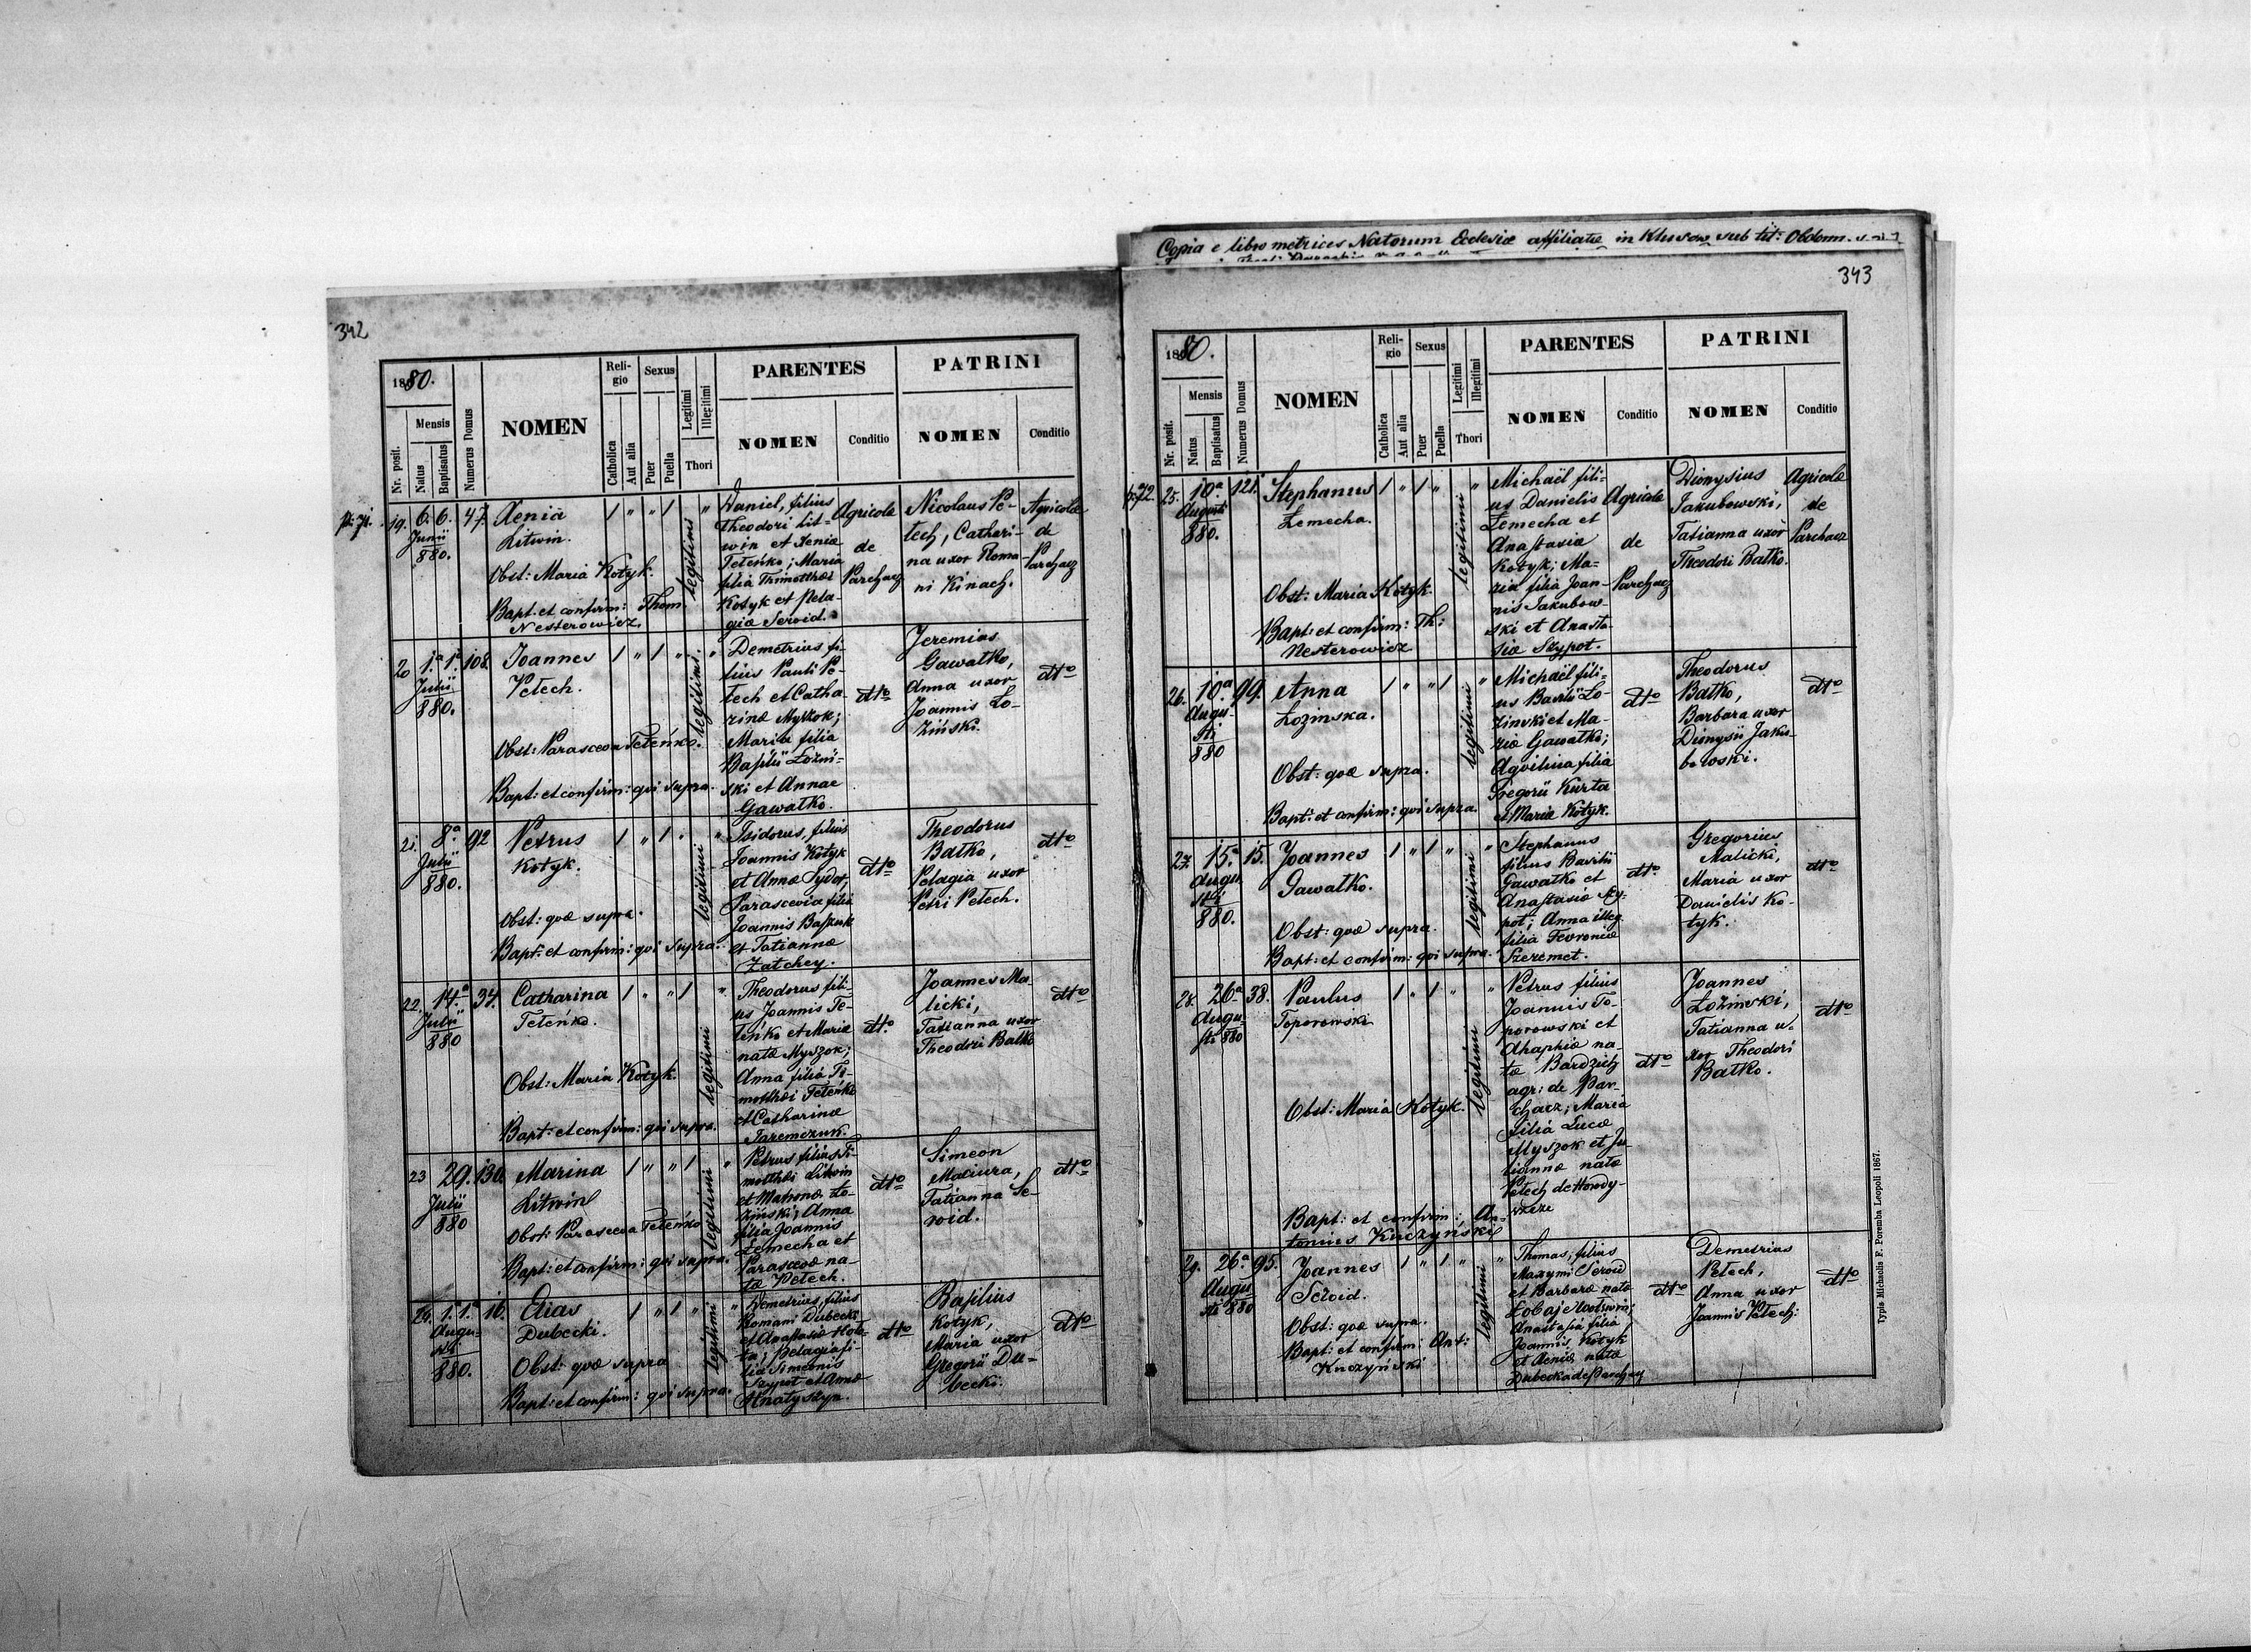 Copia e libro metrices Natorum Ecclesiæ affiliatæ in Klusow sub tit: Obdorm.
342
1880.
Nr. posit.
Mensis
Natus
Baptisatus
Numerus Domus
NOMEN
Religio
Catholica
Aut alia
Sexus
Puer
Puella
Legitimi
Illegitimi
Thori
PARENTES
NOMEN
Conditio
PATRINI
NOMEN
Conditio
19. 6. 6. Junii 880. 47.
Xenia
Litwin.
Obst: Maria Kotyk.
Bapt: et confirm: Thom.
Nesterowicz.
1 " " 1 "
legitimi
Daniel, filius
Theodori Lit-
win et Xeniæ
Teteńko; Maria
filia Thimotthei
Kotyk et Pela-
giæ Seroid.
Agricolæ
de
Parchacz
Nicolaus Pe-
tech, Cathari-
na uxor Roma-
ni Kinach.
Agricolæ
de
Parchacz
20 1.a 1.a Julii 880. 108.
Joannes
Petech.
Obst: Parasceva Teteńko.
Bapt: et confirm: qui supra.
1 " 1 " "
legitimi.
Demetrius fi-
lius Pauli Pe-
tech et Catha-
rinæ Myszok;
Maria filia
Basilii Łoziń-
ski et Annae
Gawatko.
dtto
Jeremias
Gawatko,
Anna uxor
Joannis Ło-
ziński.
dtto
21. 8.a Julii 880. 92
Petrus
Kotyk.
Obst: quæ supra.
Bapt: et confirm: qui supra.
1 " 1 " "
legitimi
Isidorus, filius
Joannis Kotyk
et Annæ Sydor,
Parascevia filia
Joannis Baszuk
et Tatiannæ
Zatchey.
dtto
Theodorus
Batko,
Pelagia uxor
Petri Petech.
dtto
22. 14.a Julii 880 34.
Catharina
Teteńko.
Obst: Maria Kotyk.
Bapt: et confirm: qui supra.
1 " " 1 "
legitimi
Theodorus fili-
us Joannis Te-
teńko et Mariæ
natæ Myszok;
Anna filia Ti-
motthei Teteńko
et Catharinæ
Jaremczuk.
dtto.
Joannes Ma-
licki,
Tatianna uxor
Theodori Batko
dtto
23 29. Julii 880 130.
Marina
Litwin
Obst: Parasceva Teteńko
Bapt: et confirm: qui supra.
1 " " 1 "
legitimi
Petrus filius Ti-
motthei Litwin
et Matronæ Ło-
ziński; Anna
filia Joannis
Łemecha et
Parascevæ na-
tæ Petech.
dtto
Simeon
Maciura,
Tatianna Se-
roid.
dtto
24. 1.a 1.a Augusti 880. 16.
Elias
Dubecki.
Obst: quæ supra
Bapt: et confirm: qui supra.
1 " 1 " "
legitimi
Demetrius, filius
Romani Dubecki
et Anastasiæ
Pelagia fi-
lia Simeonis
Szypot et Annæ
Hnatyszyn.
dtto
Basilius
Kotyk,
Maria uxor
Gregorii Du-
becki.
dtto
343
1880.
Nr. posit.
Mensis
Natus
Baptisatus
Numerus Domus
NOMEN
Religio
Catholica
Aut alia
Sexus
Puer
Puella
Legitimi
Illegitimi
Thori
PARENTES
NOMEN
Conditio
PATRINI
NOMEN
Conditio
p. 72.
25. 10.a Augusti 880. 121.
Stephanus
Łemecha.
Obst: Maria Kotyk.
Bapt: et confirm: Th:
Nesterowicz
1 " 1 " "
legitimi
Michaël fili-
us Danielis
Łemecha et
Anastasiæ
Kotyk; Ma-
ria filia Joan-
nis Jakubow-
ski et Anasta-
siæ Szypot.
Agricolæ
de
Parchacz
Dionysius
Jakubowski,
Tatianna uxor
Theodori Batko.
Agricolæ
de
Parchacz
26. 10.a Augusti 880 99.
Anna
Łozinska.
Obst: quæ supra.
Bapt: et confirm: qui supra.
1 " " 1 "
legitimi
Michaël fili-
us Basilii Ło-
zinski et Ma-
riæ Gawatko;
Aquilina filia
Gregorii Kurta
et Mariæ Kotyk.
dtto
Theodorus
Batko,
Barbara uxor
Dionysii Jaku-
bowski.
dtto
27. 15.a Augusti 880. 15.
Joannes
Gawatko.
Obst: quæ supra.
Bapt: et confirm: qui supra.
1 " 1 " "
legitimi
Stephanus
filius Basilii
Gawatko et
Anastasiæ Szy-
pot; Anna illeg.
filia Fevroniæ
Szeremet.
dtto.
Gregorius
Malicki,
Maria uxor
Danielis Ko-
tyk.
dtto
28. 26.a Augusti 880 38.
Paulus
Toporowski
Obst: Maria Kotyk.
Bapt: et confirm: An-
tonius Kuczyński
1 " 1 " "
legitimi
Petrus filius
Joannis To-
porowski et
Ahaphiæ na-
tæ Bardzich
agr: de Par-
chacz; Maria
filia Lucæ
Myszok et Ju-
liannæ natæ
Petech de Horody-
szcze
dtto
Joannes
Łoźinski,
Tatianna u-
xor Theodori
Batko.
dtto
29. 26.a Augusti 880 95.
Joannes
Seroid.
Obst: quæ supra.
Bapt: et confirm: Ant:
Kuczyński
1 " 1 " "
legitimi
Thomas, filius
Maxymi Seroid
et Barbaræ natæ
Anastasia filia
Joannis Kotyk
et Xeniæ natæ
Dubecka de Parchacz
dtto
Demetrius
Petech,
Anna uxor
Joannis Petech.
dtto
Typis Michaelis F. Poremba Leopoli 1867.